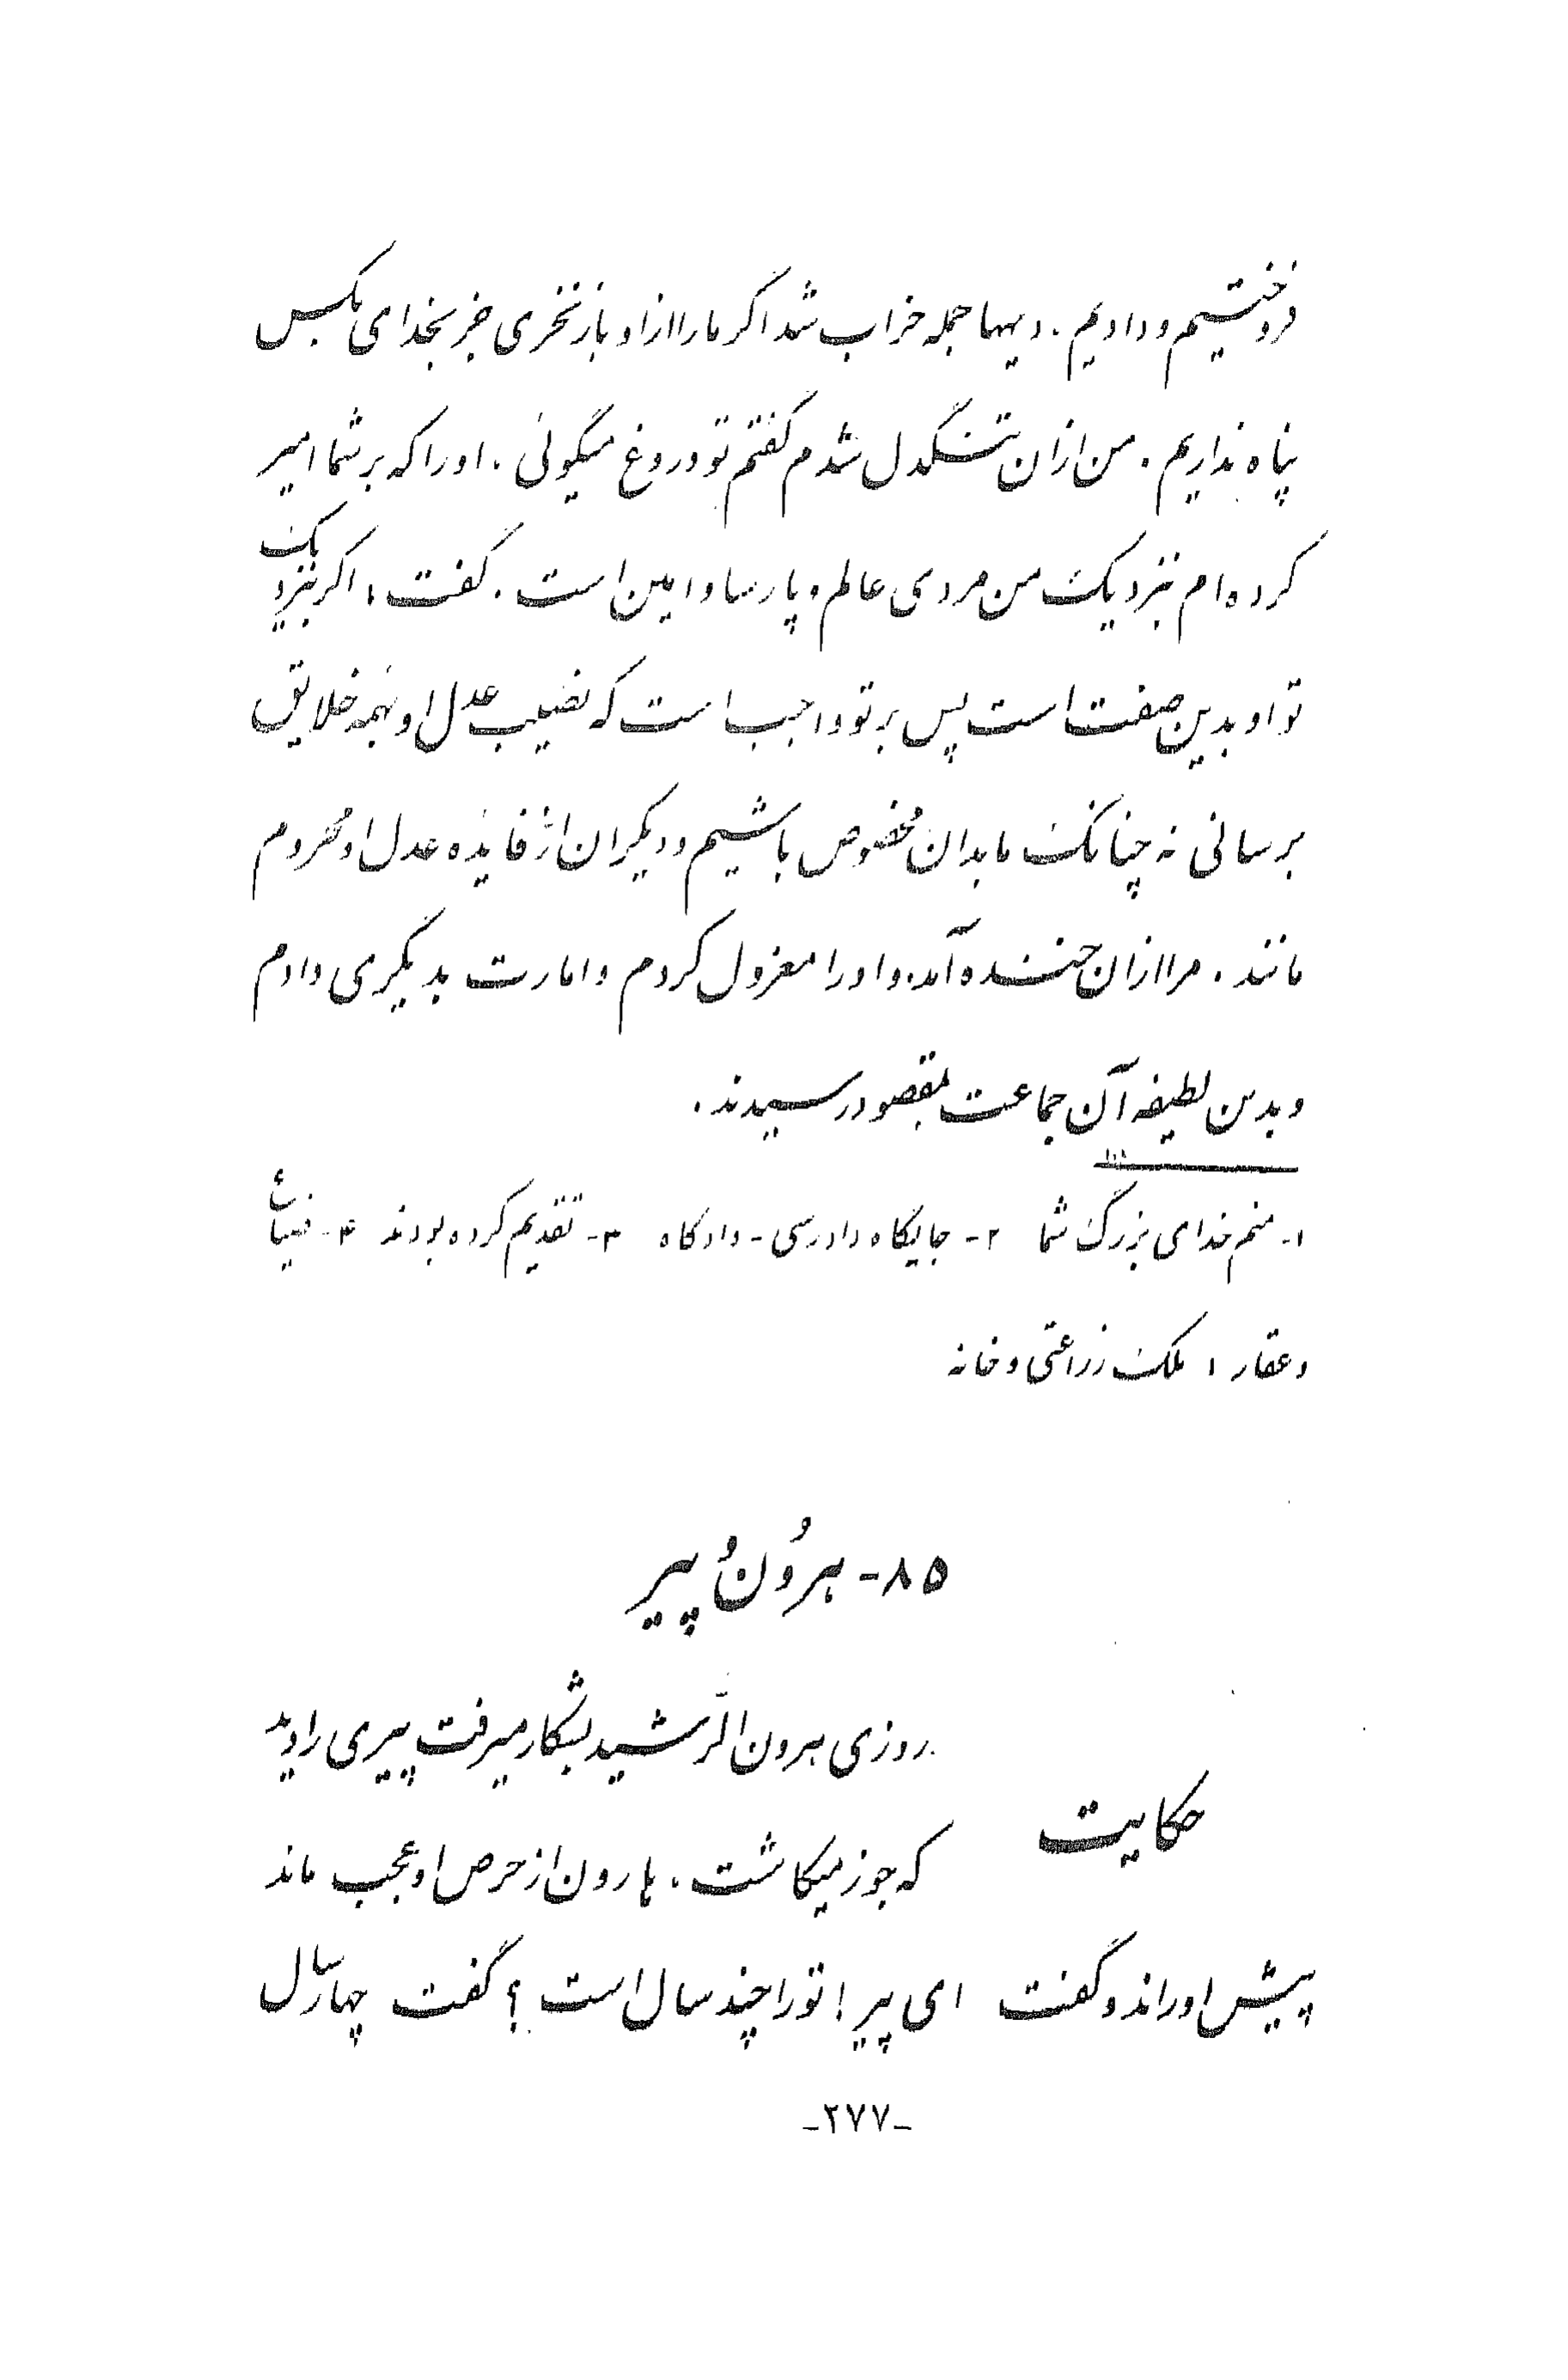 فروختیم و دادیم. دیهها جمله خراب شد اگر ما را از او باز نخری جز بخدای بکس
پناه نداریم. من ازان تنگدل شدم گفتم تو دروغ میگوئی. او را که بر شما امیر
کرده‌ام نزدیک من مردی عالم و پارسا و امین است. گفت: اگر بنزدیک
تو او بدین صفت است پس بر تو واجب است که نصیب عدل او بهمه خلایق
برسانی نه چنانک ما بدان مخصوص باشیم و دیگران از فایده عدل او محروم
مانند. مرا ازان خنده آمد. و او را معزول کردم و امارت بدیگری دادم
و بدین لطیفه آن جماعت بمقصود رسیدند.
۱- منم خدای بزرگ شما ۲- جایگاه دادرسی - دادگاه ۳- تقدیم کرده بودند ۴- ضیاع
و عقار: ملک زراعتی و خانه
۸۵- هرُون وُ پیر
حکایت
روزی هرون الرّشید بشکار میرفت پیری را دید
که جوز میکاشت. هارون از حرص او عجب ماند
پیش او راند و گفت ای پیر! تو را چند سال است؟ گفت چهار سال
-۲۷۷-